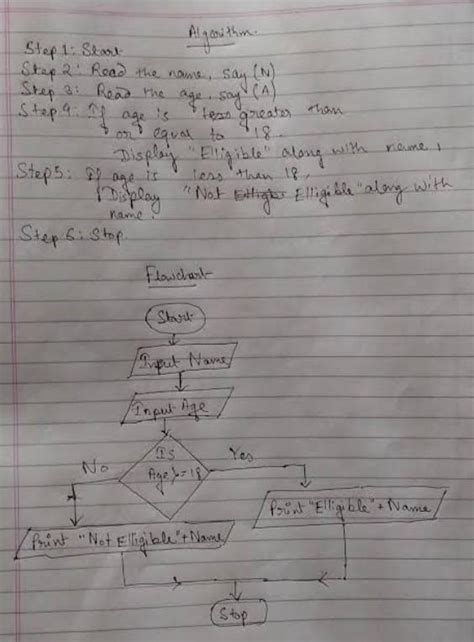 Algorithm.
Step 1: Start
Step 2: Read the name, say (N)
Step 3: Read the age, say (A)
Step 4: If age is less greater than
or equal to 18.
Display "Elligible" along with name,
Step 5: If age is less than 18,
Display "Not Elligible" along with
name.
Step 6: Stop.
Flowchart
Start
Input Name
Input Age
Is
Age >= 18
No
Yes
Print "Elligible" + Name
Print "Not Elligible" + Name
Stop